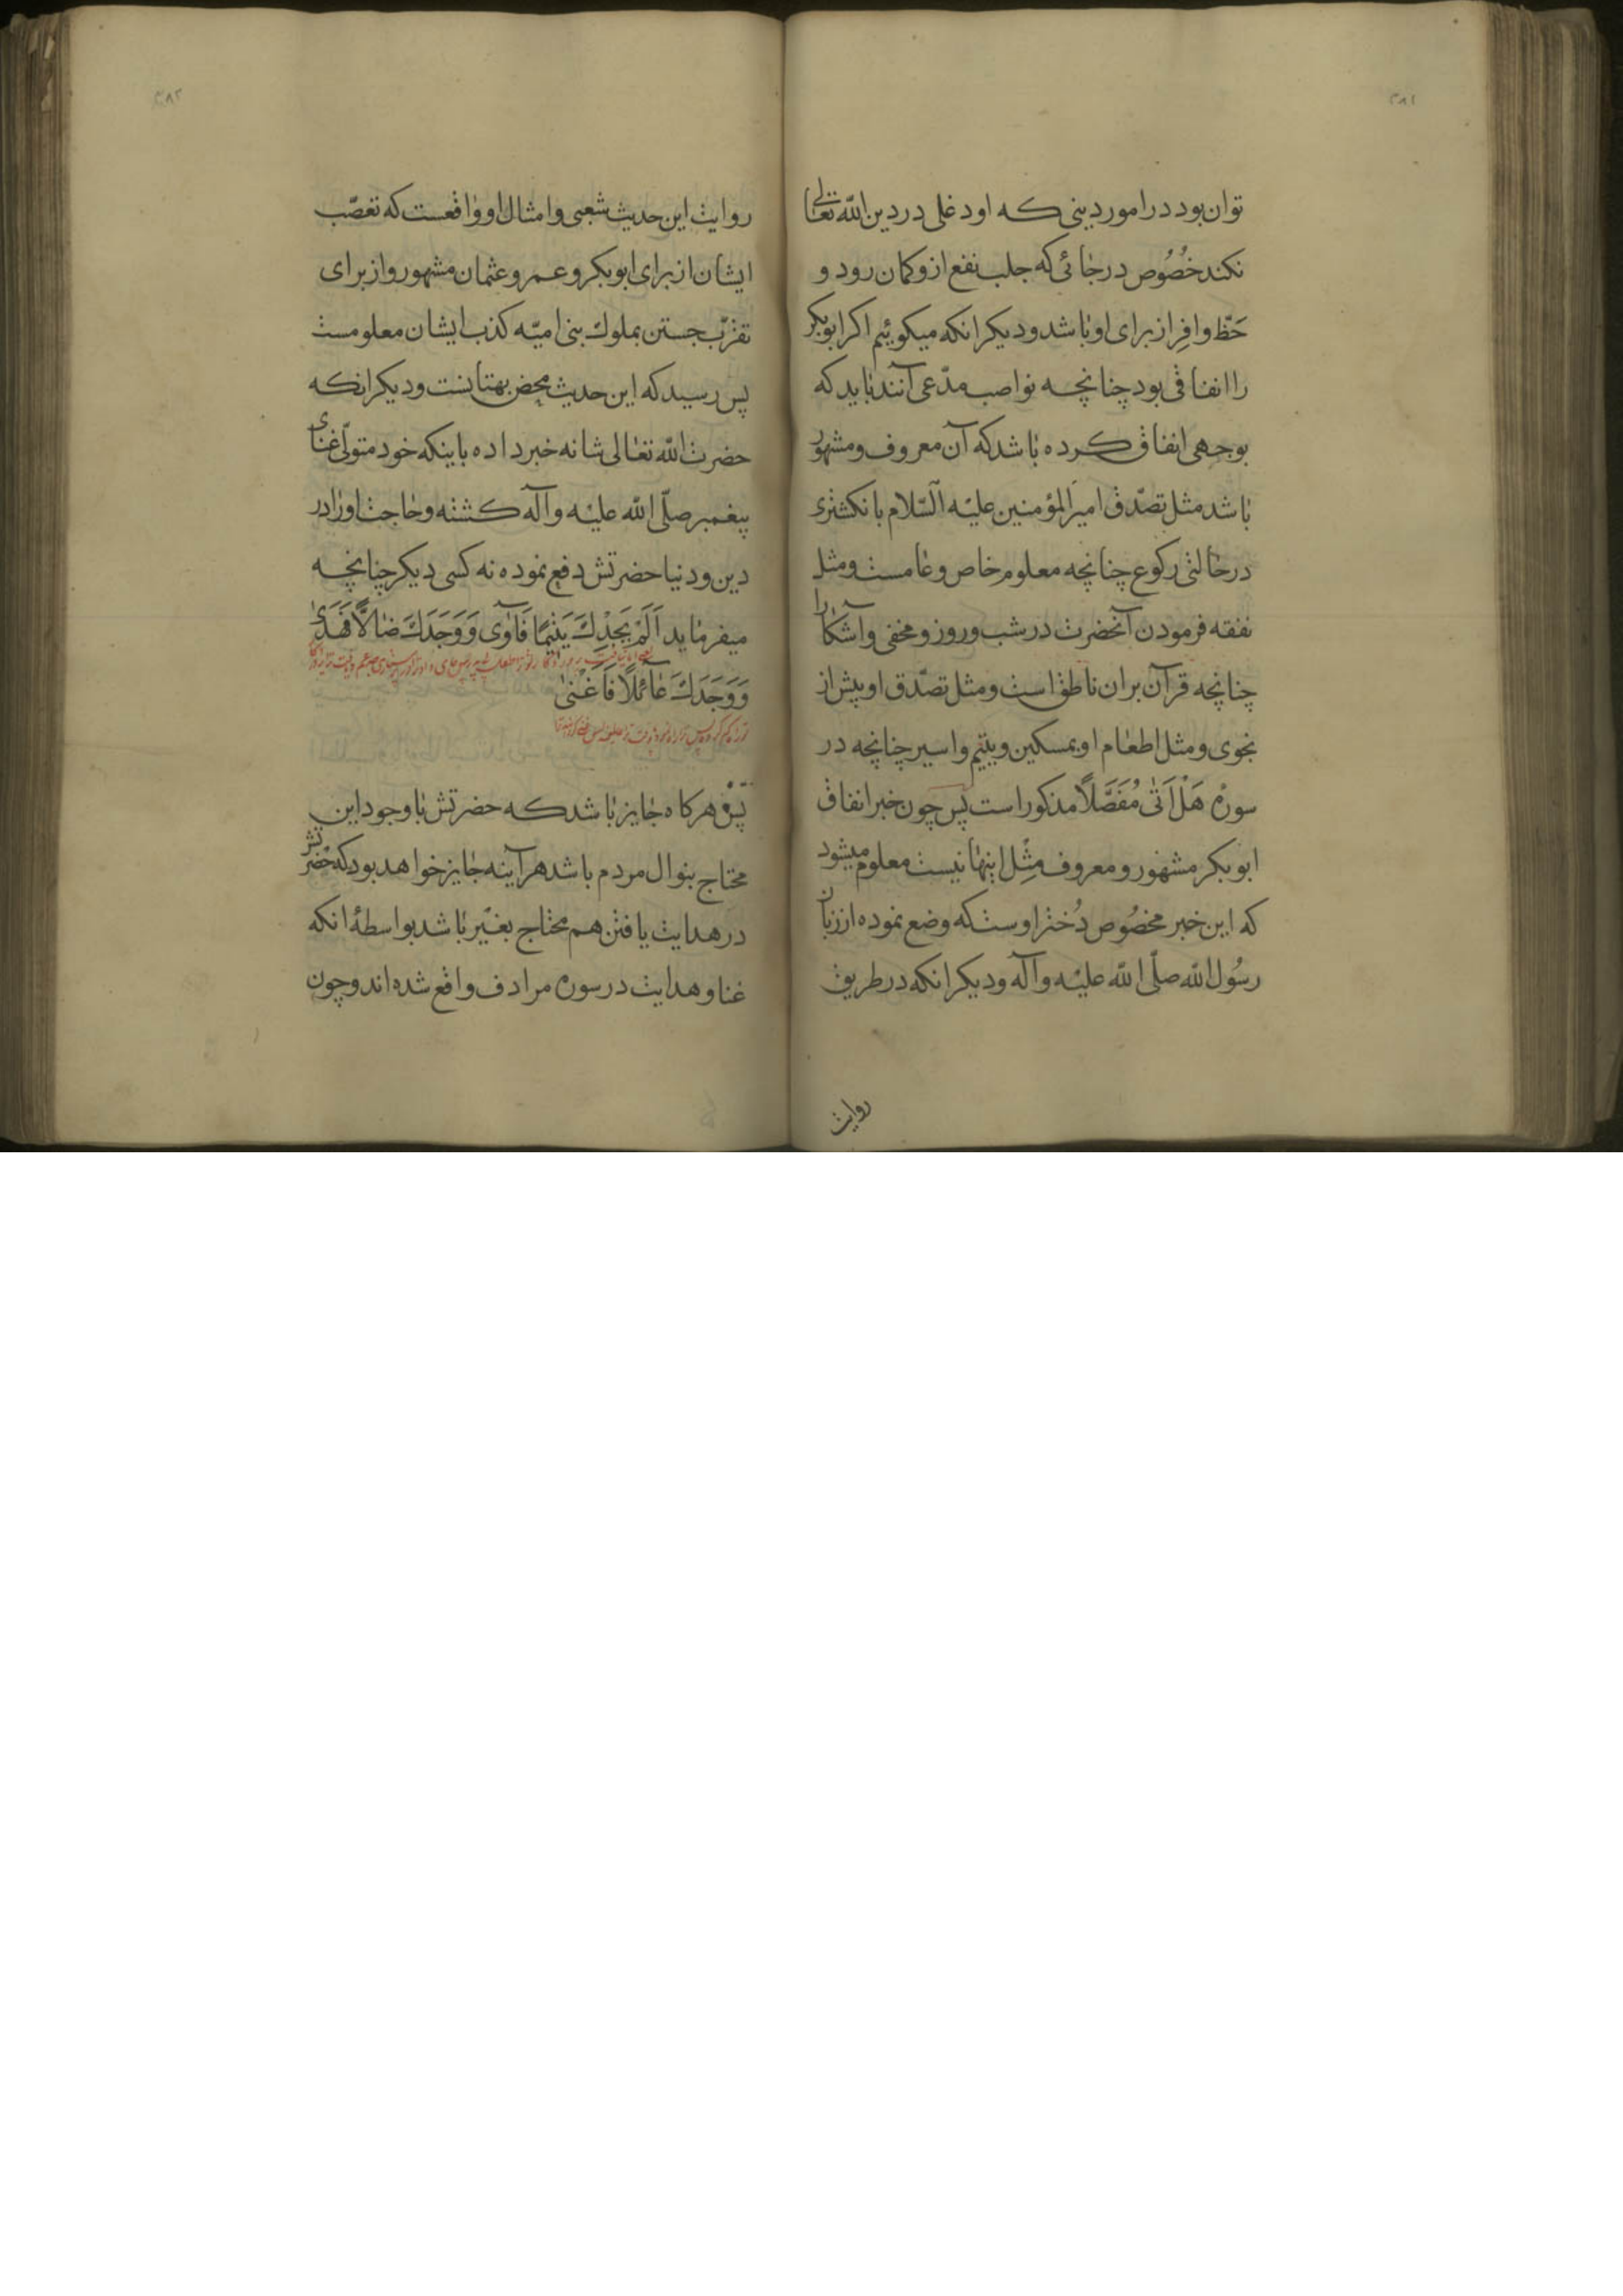 ۳۸۱
توان بود در امور دینی که او دغلی در دین الله تعالی
نکند خُصُوص در جائی که جلب نفع ازو کمان رود و
حَظّ وافِر از برای او باشد و دیکر انکه میکوئیم اکر ابوبکر
را انفاقی بود چنانچه نواصب مدّعی آنند باید که
بوجهی انفاق کرده باشد که آن معروف و مشهور
باشد مثل تصدّق امیرَالمؤمنین علیْه السّلام بانکشتری
در حالتی رکوع چنانچه معلوم خاص و عامست و مثل
نفقه فرمودن آنحضرت در شب و روز و مخفی و آشکارا
چنانچه قرآن بران ناطق است و مثل تصدّق او پیش از
نجوی و مثل اطعام او بمسکین و یتیم و اسیر چنانچه در
سورهٔ هَلْ اَتٰی مُفَصَّلاً مذکور است پس چون خبر انفاق
ابوبکر مشهور و معروف مِثْل اینها نیست معلوم میشود
که این خبر مخصُوص دُختر اوست که وضع نموده از زبان
رسُول الله صلّی الله علیْه وآله و دیکر انکه در طریق
روایت
۳۸۲
روایت این حدیث شعبی و امثال او واقعست که تعصّب
ایشان از برای ابوبکر و عمر و عثمان مشهور و از برای
تقرّب جستن بملوك بنی امیّه کذب ایشان معلومست
پس رسید که این حدیث محض بهتانست و دیکر انکه
حضرت الله تعالی شانه خبر داده باینکه خود متولّی غنای
پیغمبر صلّی الله علیْه وآله کشته و حاجت او را در
دین و دنیا حضرتش دفع نموده نه کسی دیکر چنانچه
میفرماید اَلَمْ یَجِدْكَ یَتیمًا فَآوٰی وَوَجَدَكَ ضالًّا فَهَدٰی
وَوَجَدَكَ عآئلًا فَاَغْنٰی
پس هرکاه جایز باشد که حضرتش با وجود این
محتاج بنوال مردم باشد هر آینه جایز خواهد بود که حضرتش
در هدایت یافتن هم محتاج بغیْر باشد بواسطهٔ انکه
غنا و هدایت در سوره مرادف واقع شده اند و چون